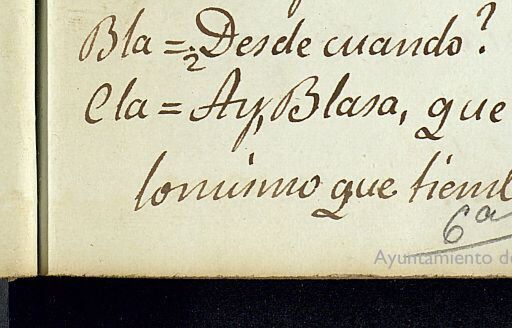 Bla = ¿Desde cuando?
Cla = Ay, Blasa, que
lo mismo que tiembl
6ª
Ayuntamiento de